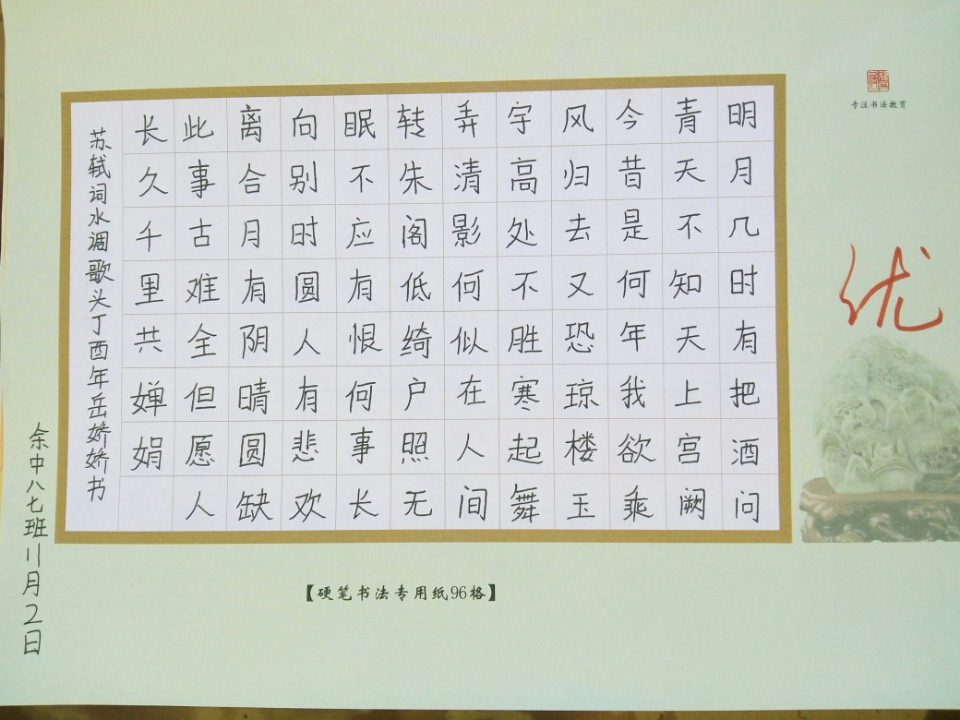 专注书法教育
优
明月几时有把酒问
青天不知天上宫阙
今昔是何年我欲乘
风归去又恐琼楼玉
宇高处不胜寒起舞
弄清影何似在人间
转朱阁低绮户照无
眠不应有恨何事长
向别时圆人有悲欢
离合月有阴晴圆缺
此事古难全但愿人
长久千里共婵娟
苏轼词水调歌头丁酉年岳娇娇书
余中八七班11月2日
【硬笔书法专用纸96格】